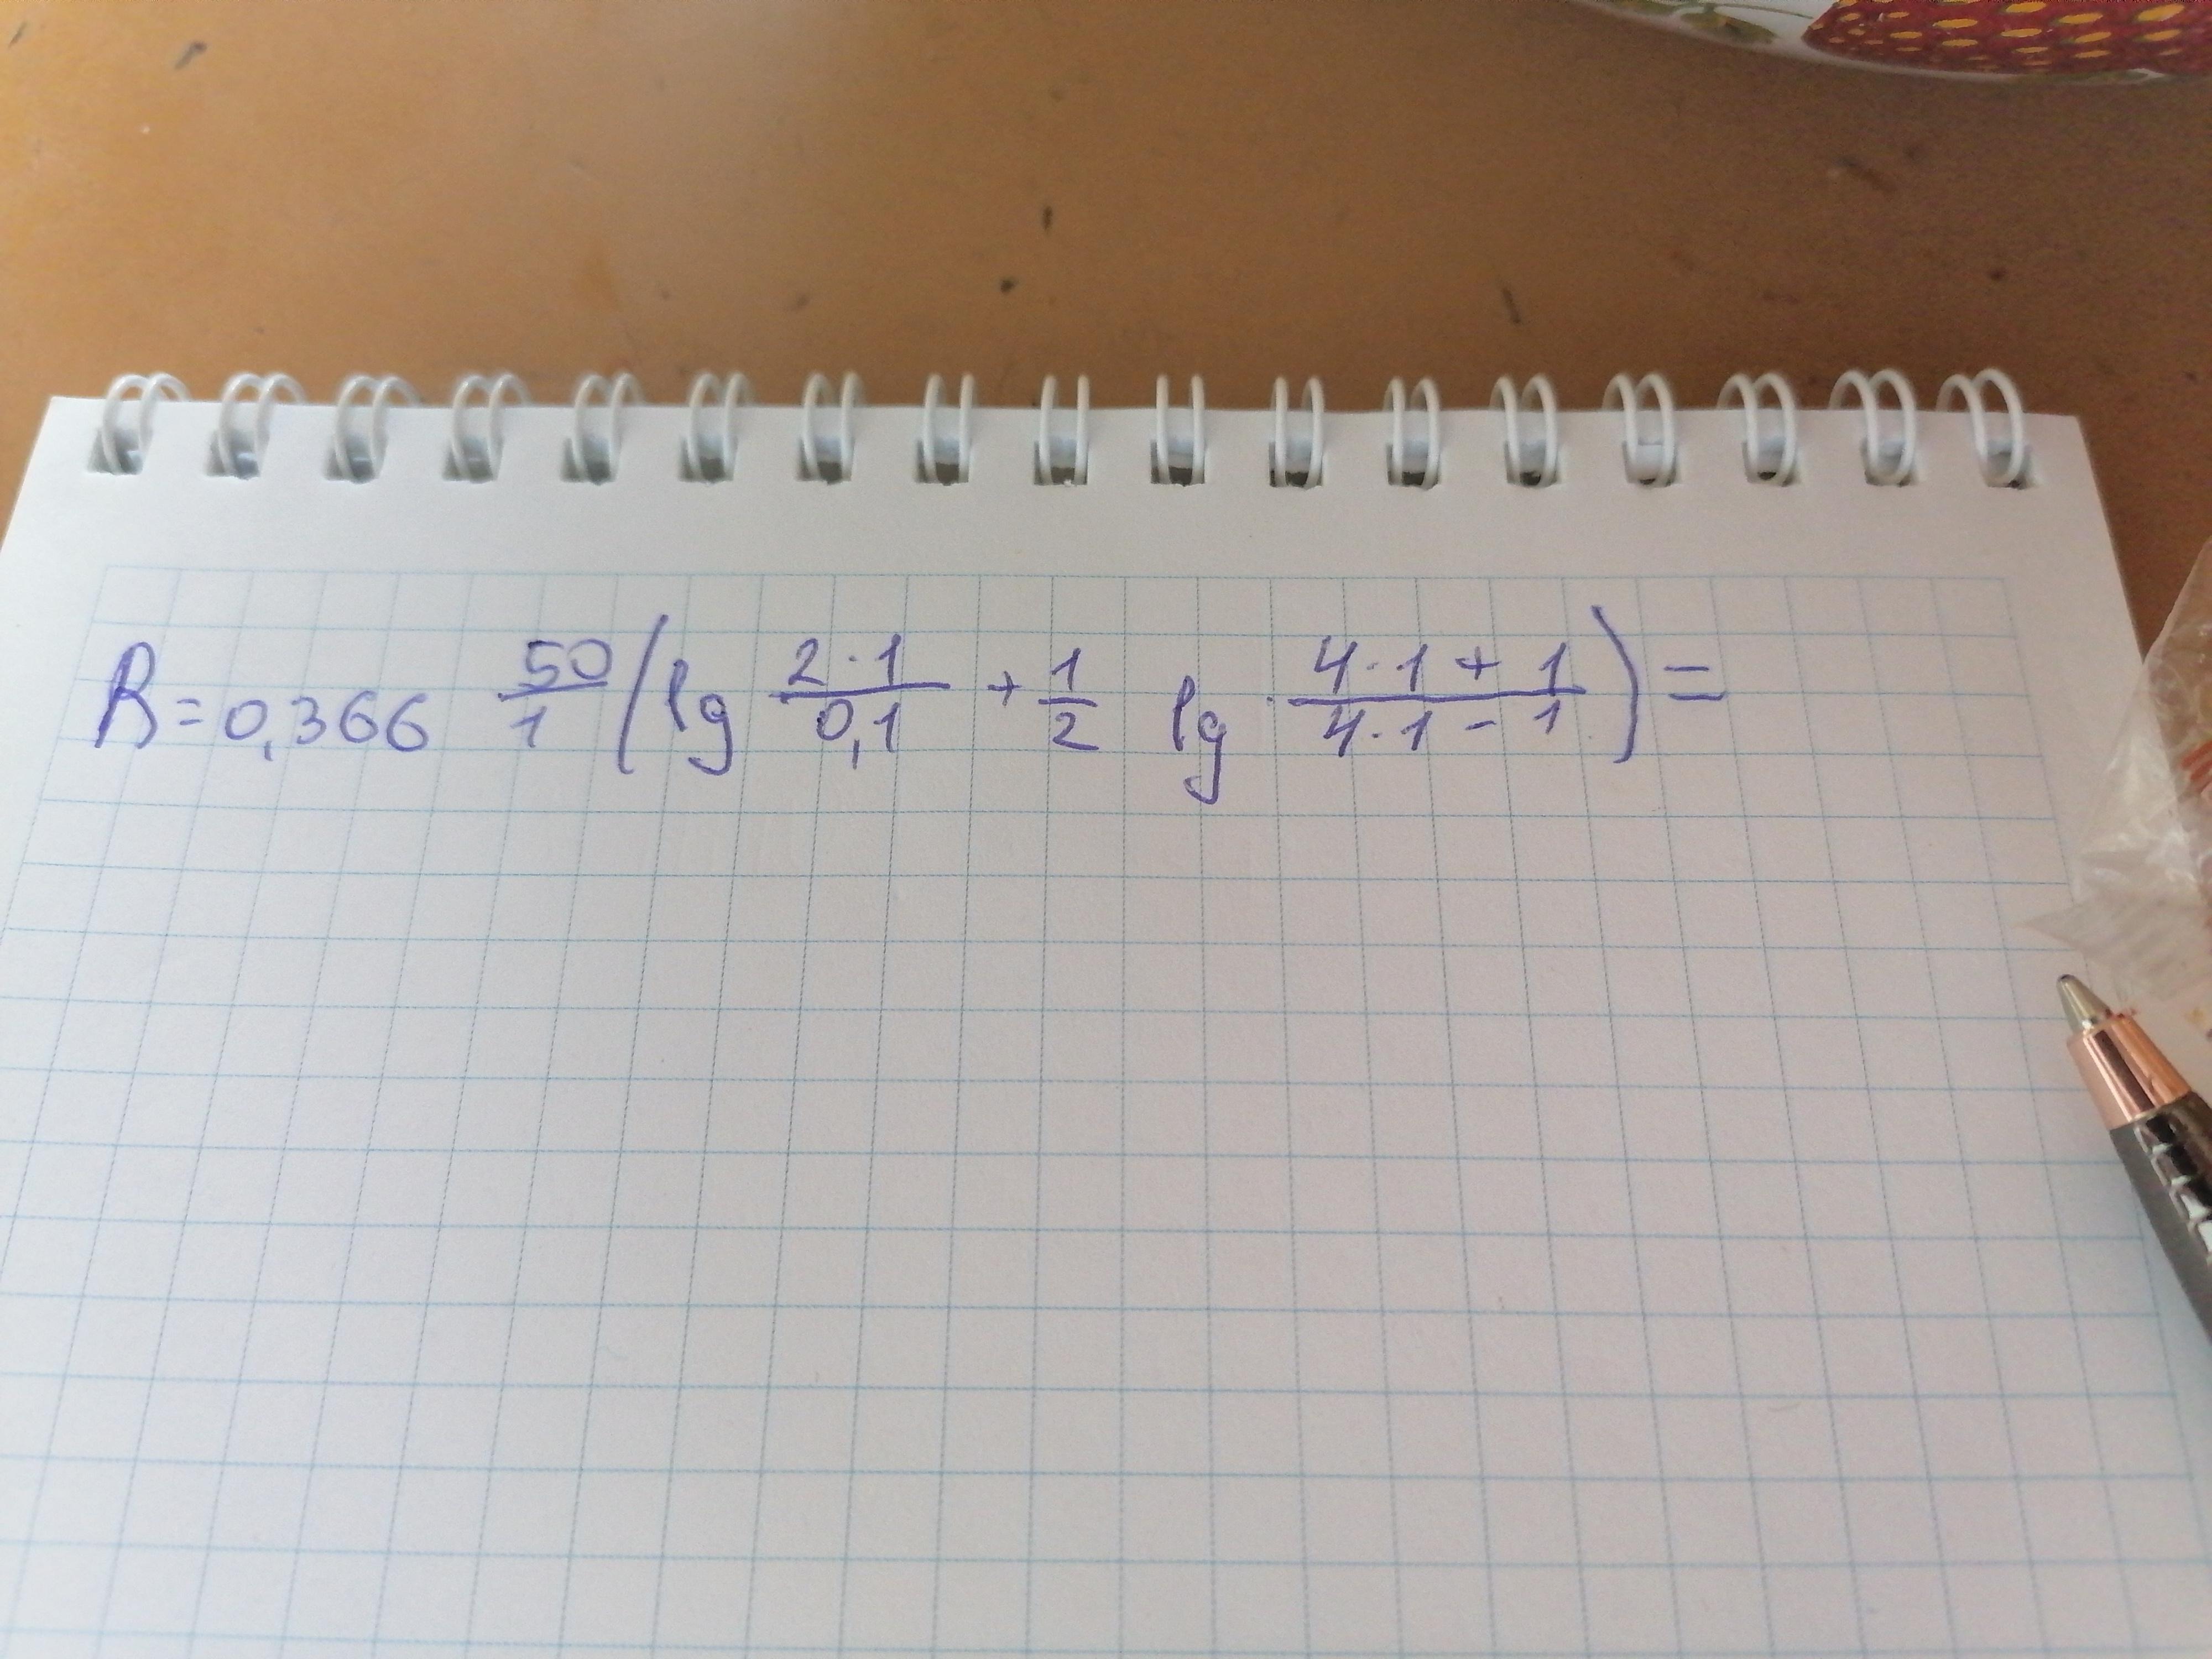 R = 0,366 50/1 (lg 2·1/0,1 + 1/2 lg 4·1+1/4·1-1) =